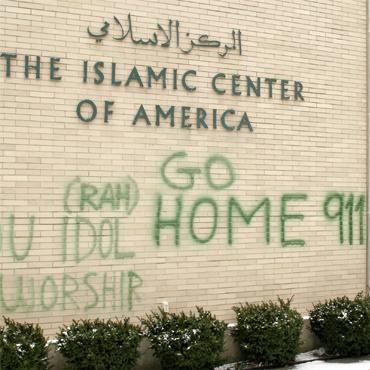 المركز الاسلامي
THE ISLAMIC CENTER
OF AMERICA
GO
HOME 911
(RAH)
U IDOL
WORSHIP